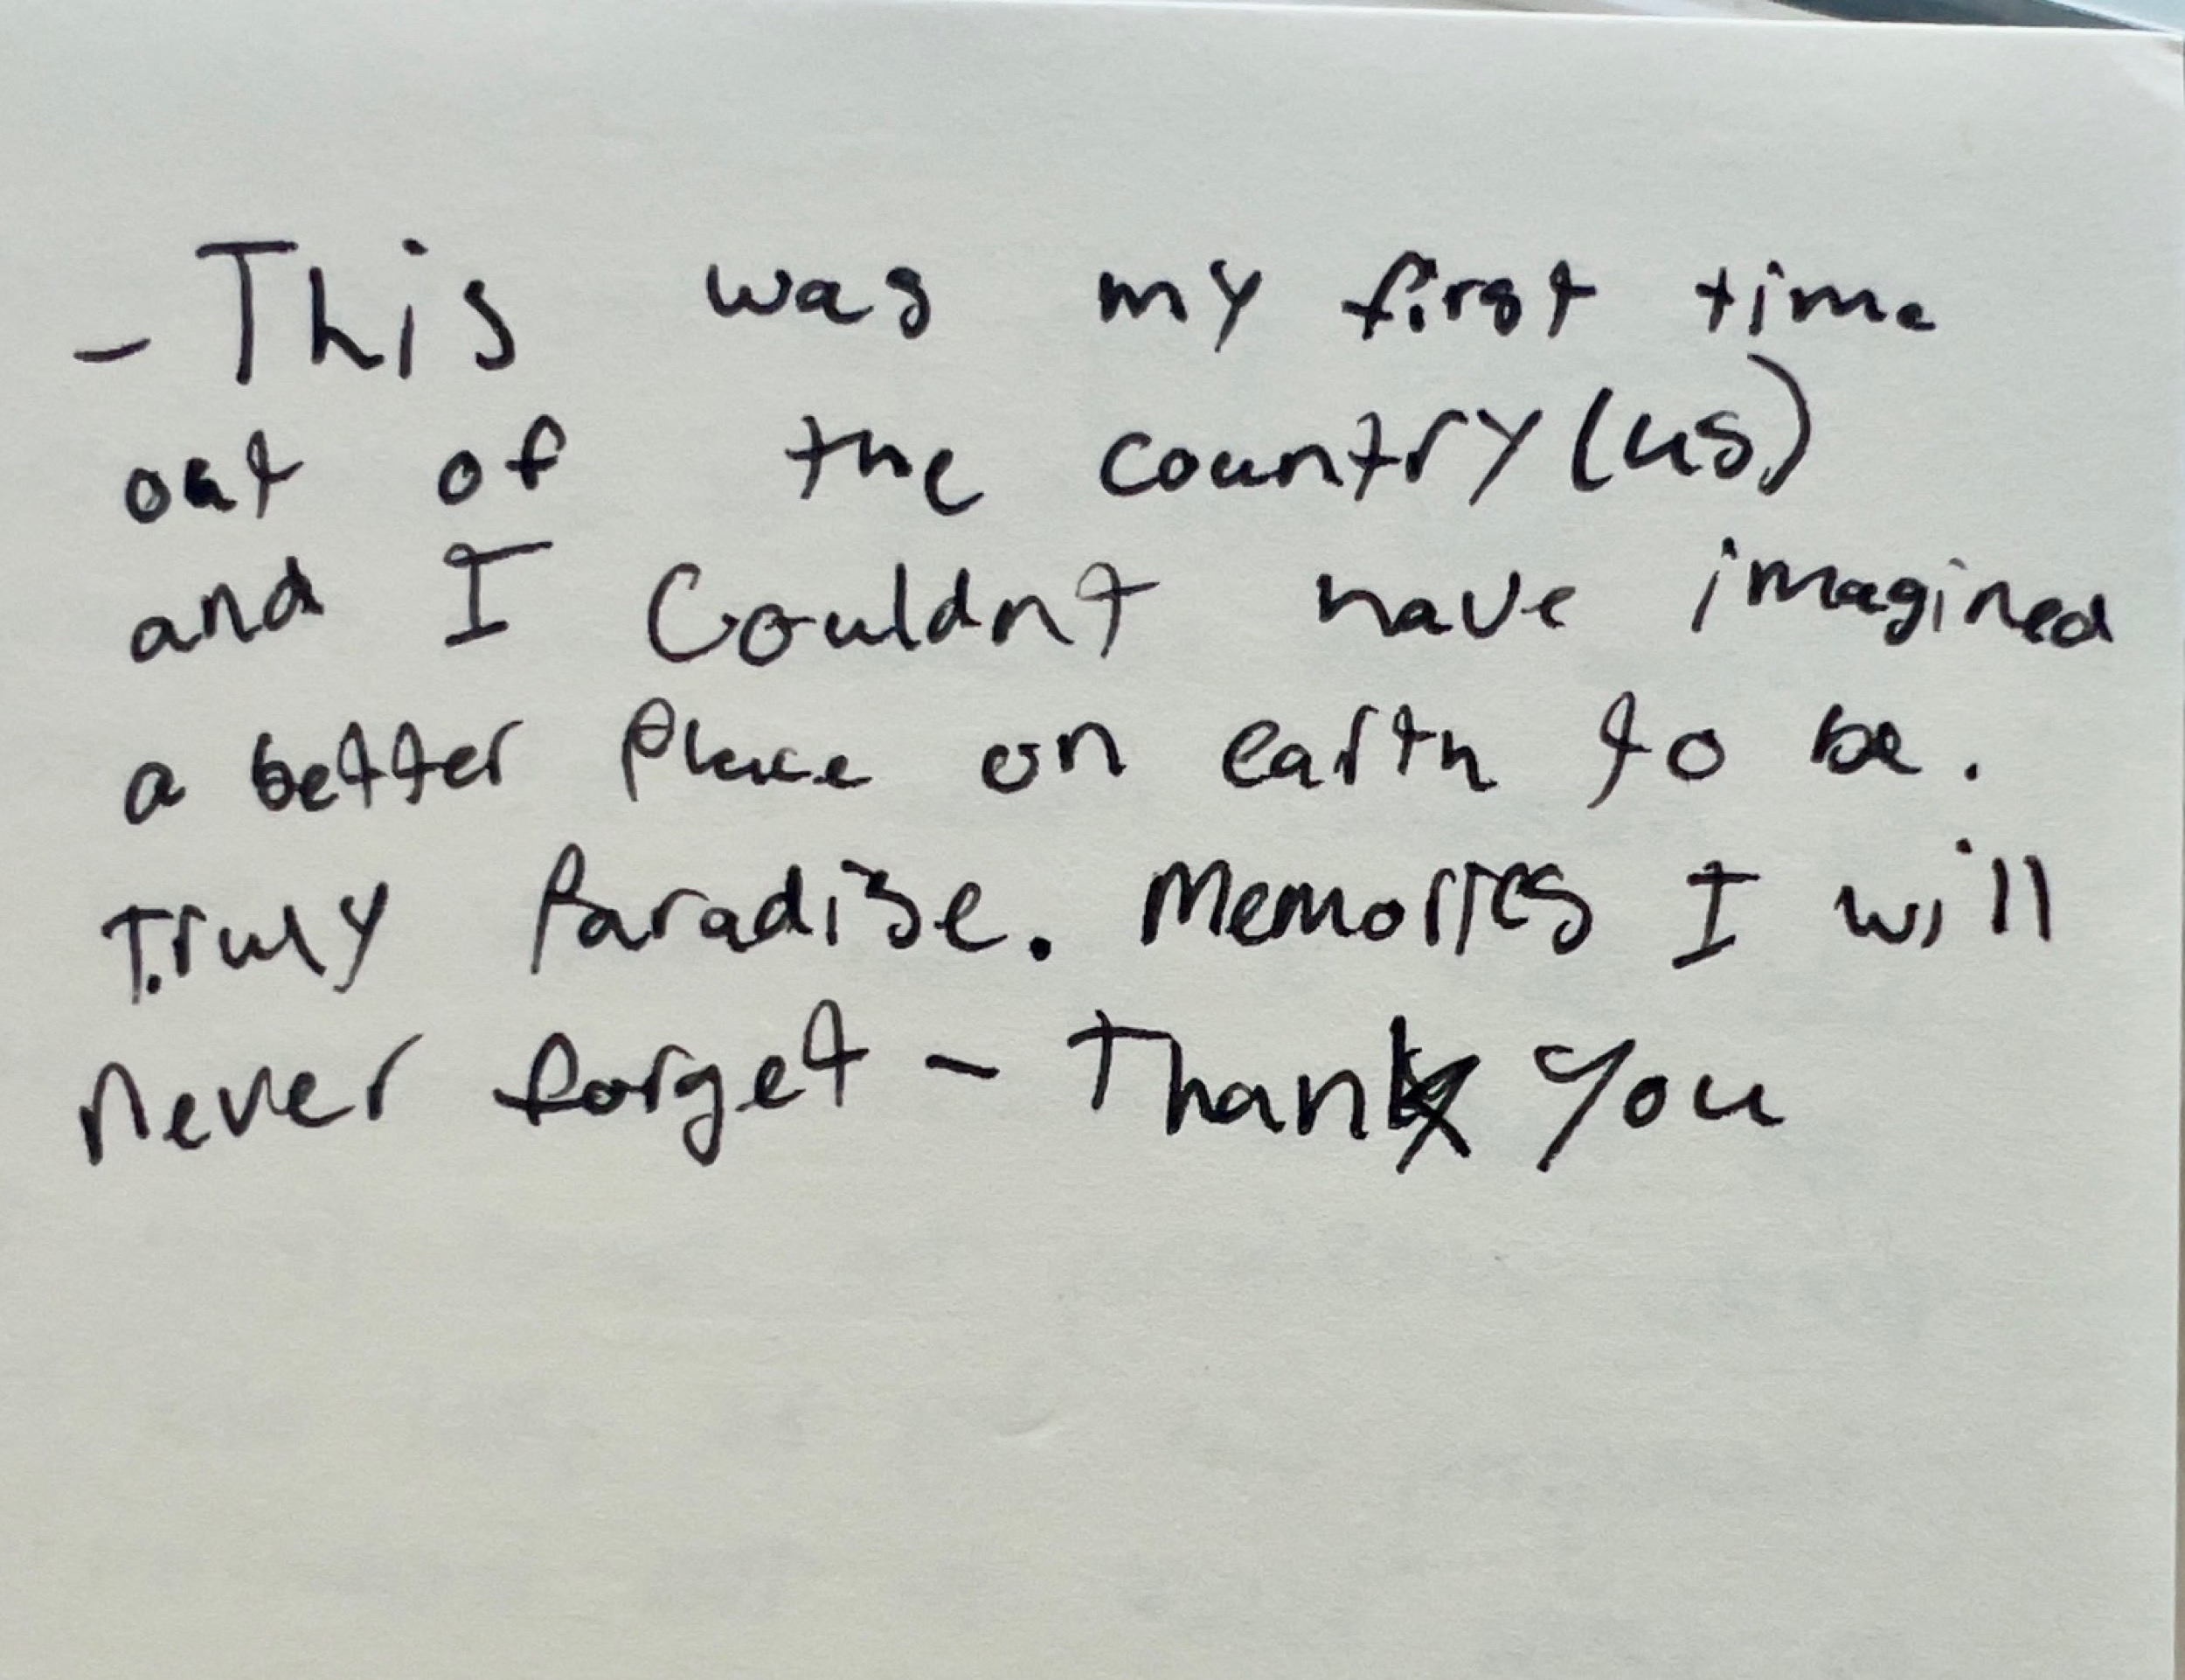 - This was my first time
out of the country (us)
and I Couldnt have imagined
a better Place on earth to be.
Truly Paradise. Memories I will
never forget - Thank you